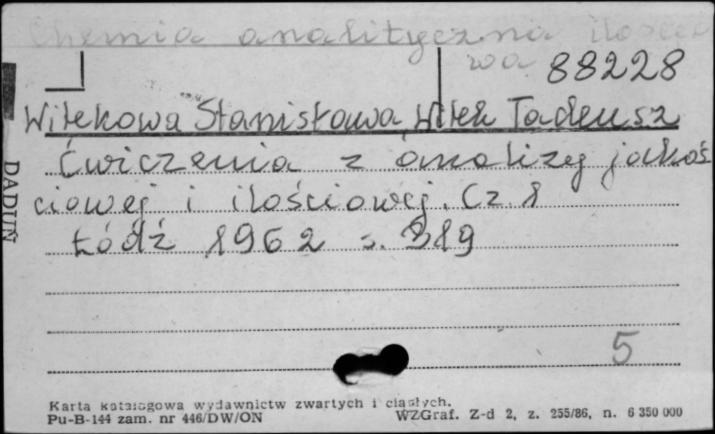 Chemia analityczna ilościo
wa 88228
Witekowa Stanisława, Witek Tadeusz
Ćwiczenia z analizy jakoś
ciowej i ilościowej. Cz. 1
Łódź 1962 s. 319
5
Karta katalogowa wydawnictw zwartych i ciągłych.
Pu-B-144 zam. nr 446/DW/ON WZGraf. Z-d 2, z. 255/86, n. 6 350 000
DADUŃ